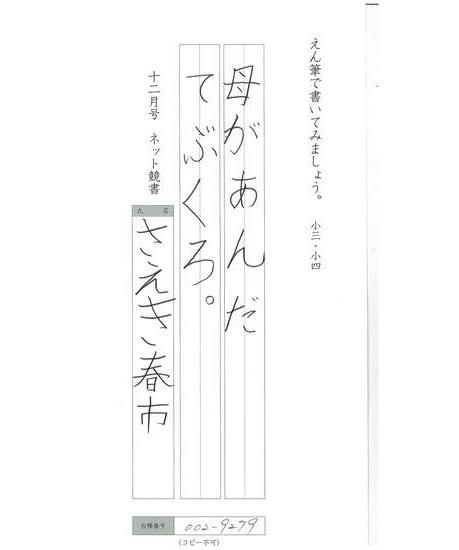 えん筆で書いてみましょう。 小三・小四
母があんだ
てぶくろ。
十二月号 ネット競書
氏 名
さえき春市
台帳番号 002-9279
(コピー不可)